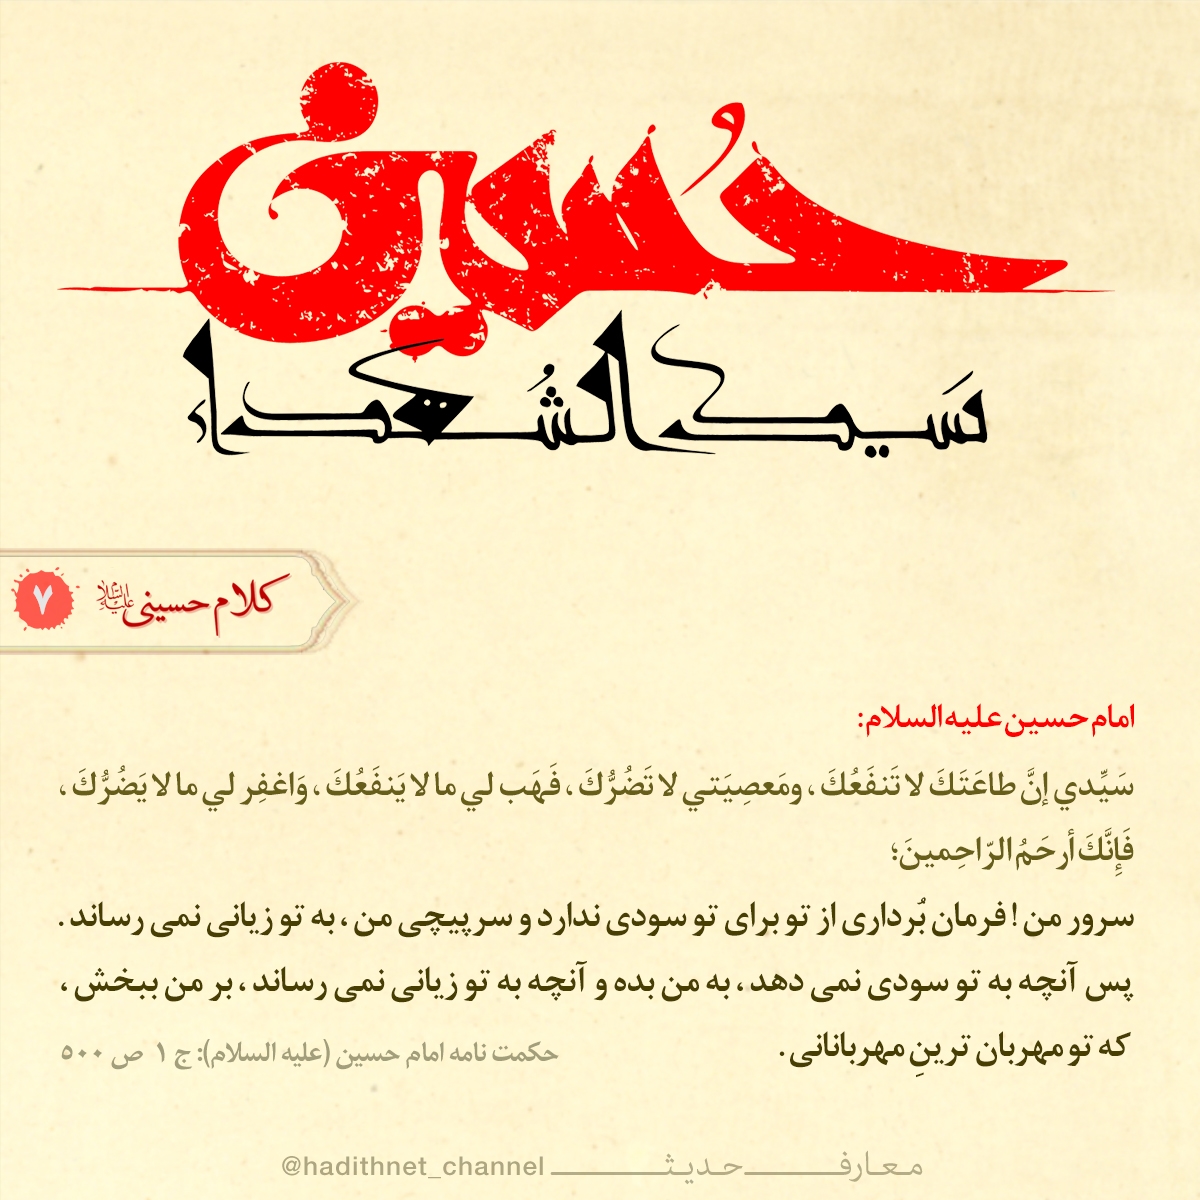 حُسین
سَیدالشُهداء
کلام حسینی علیه‌السلام ۷
امام حسین علیه السلام:
سَيِّدي إنَّ طاعَتَكَ لا تَنفَعُكَ، ومَعصِيَتي لا تَضُرُّكَ، فَهَب لي ما لا يَنفَعُكَ، وَاغفِر لي ما لا يَضُرُّكَ،
فَإِنَّكَ أرحَمُ الرّاحِمينَ؛
سرور من! فرمان بُرداری از تو برای تو سودی ندارد و سرپیچی من، به تو زیانی نمی رساند.
پس آنچه به تو سودی نمی دهد، به من بده و آنچه به تو زیانی نمی رساند، بر من ببخش،
که تو مهربان ترینِ مهربانانی.
حکمت نامه امام حسین (علیه السلام): ج ۱ ص ۵۰۰
معارف حدیث @hadithnet_channel